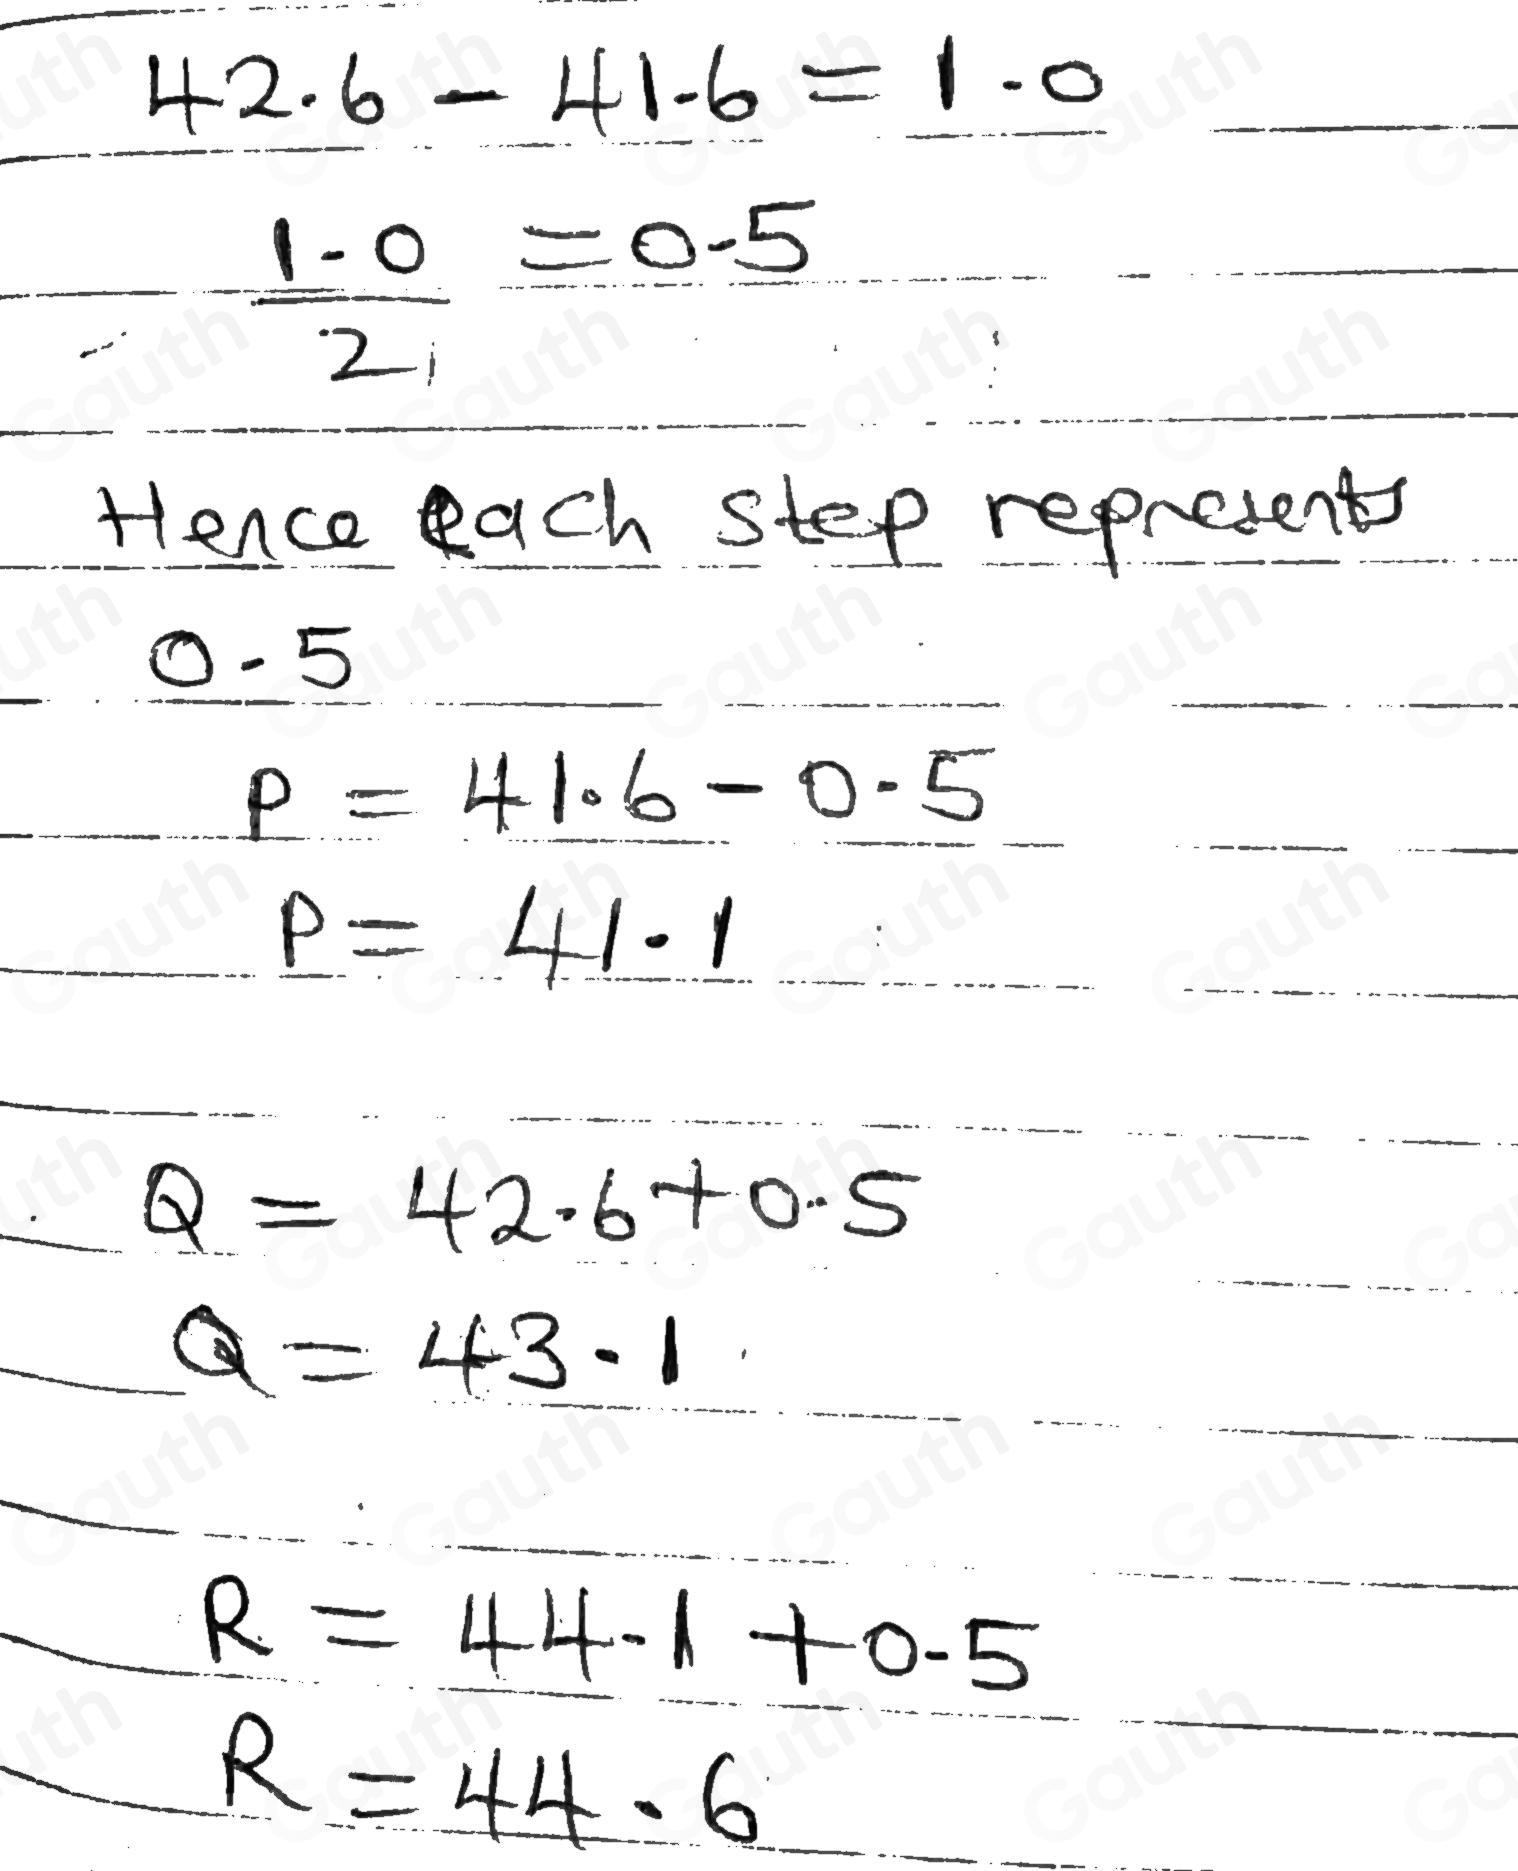 42.6 - 41.6 = 1.0
1.0 = 0.5
2
Hence each step represents
0.5
P = 41.6 - 0.5
P = 41.1
Q = 42.6 + 0.5
Q = 43.1
R = 44.1 + 0.5
R = 44.6